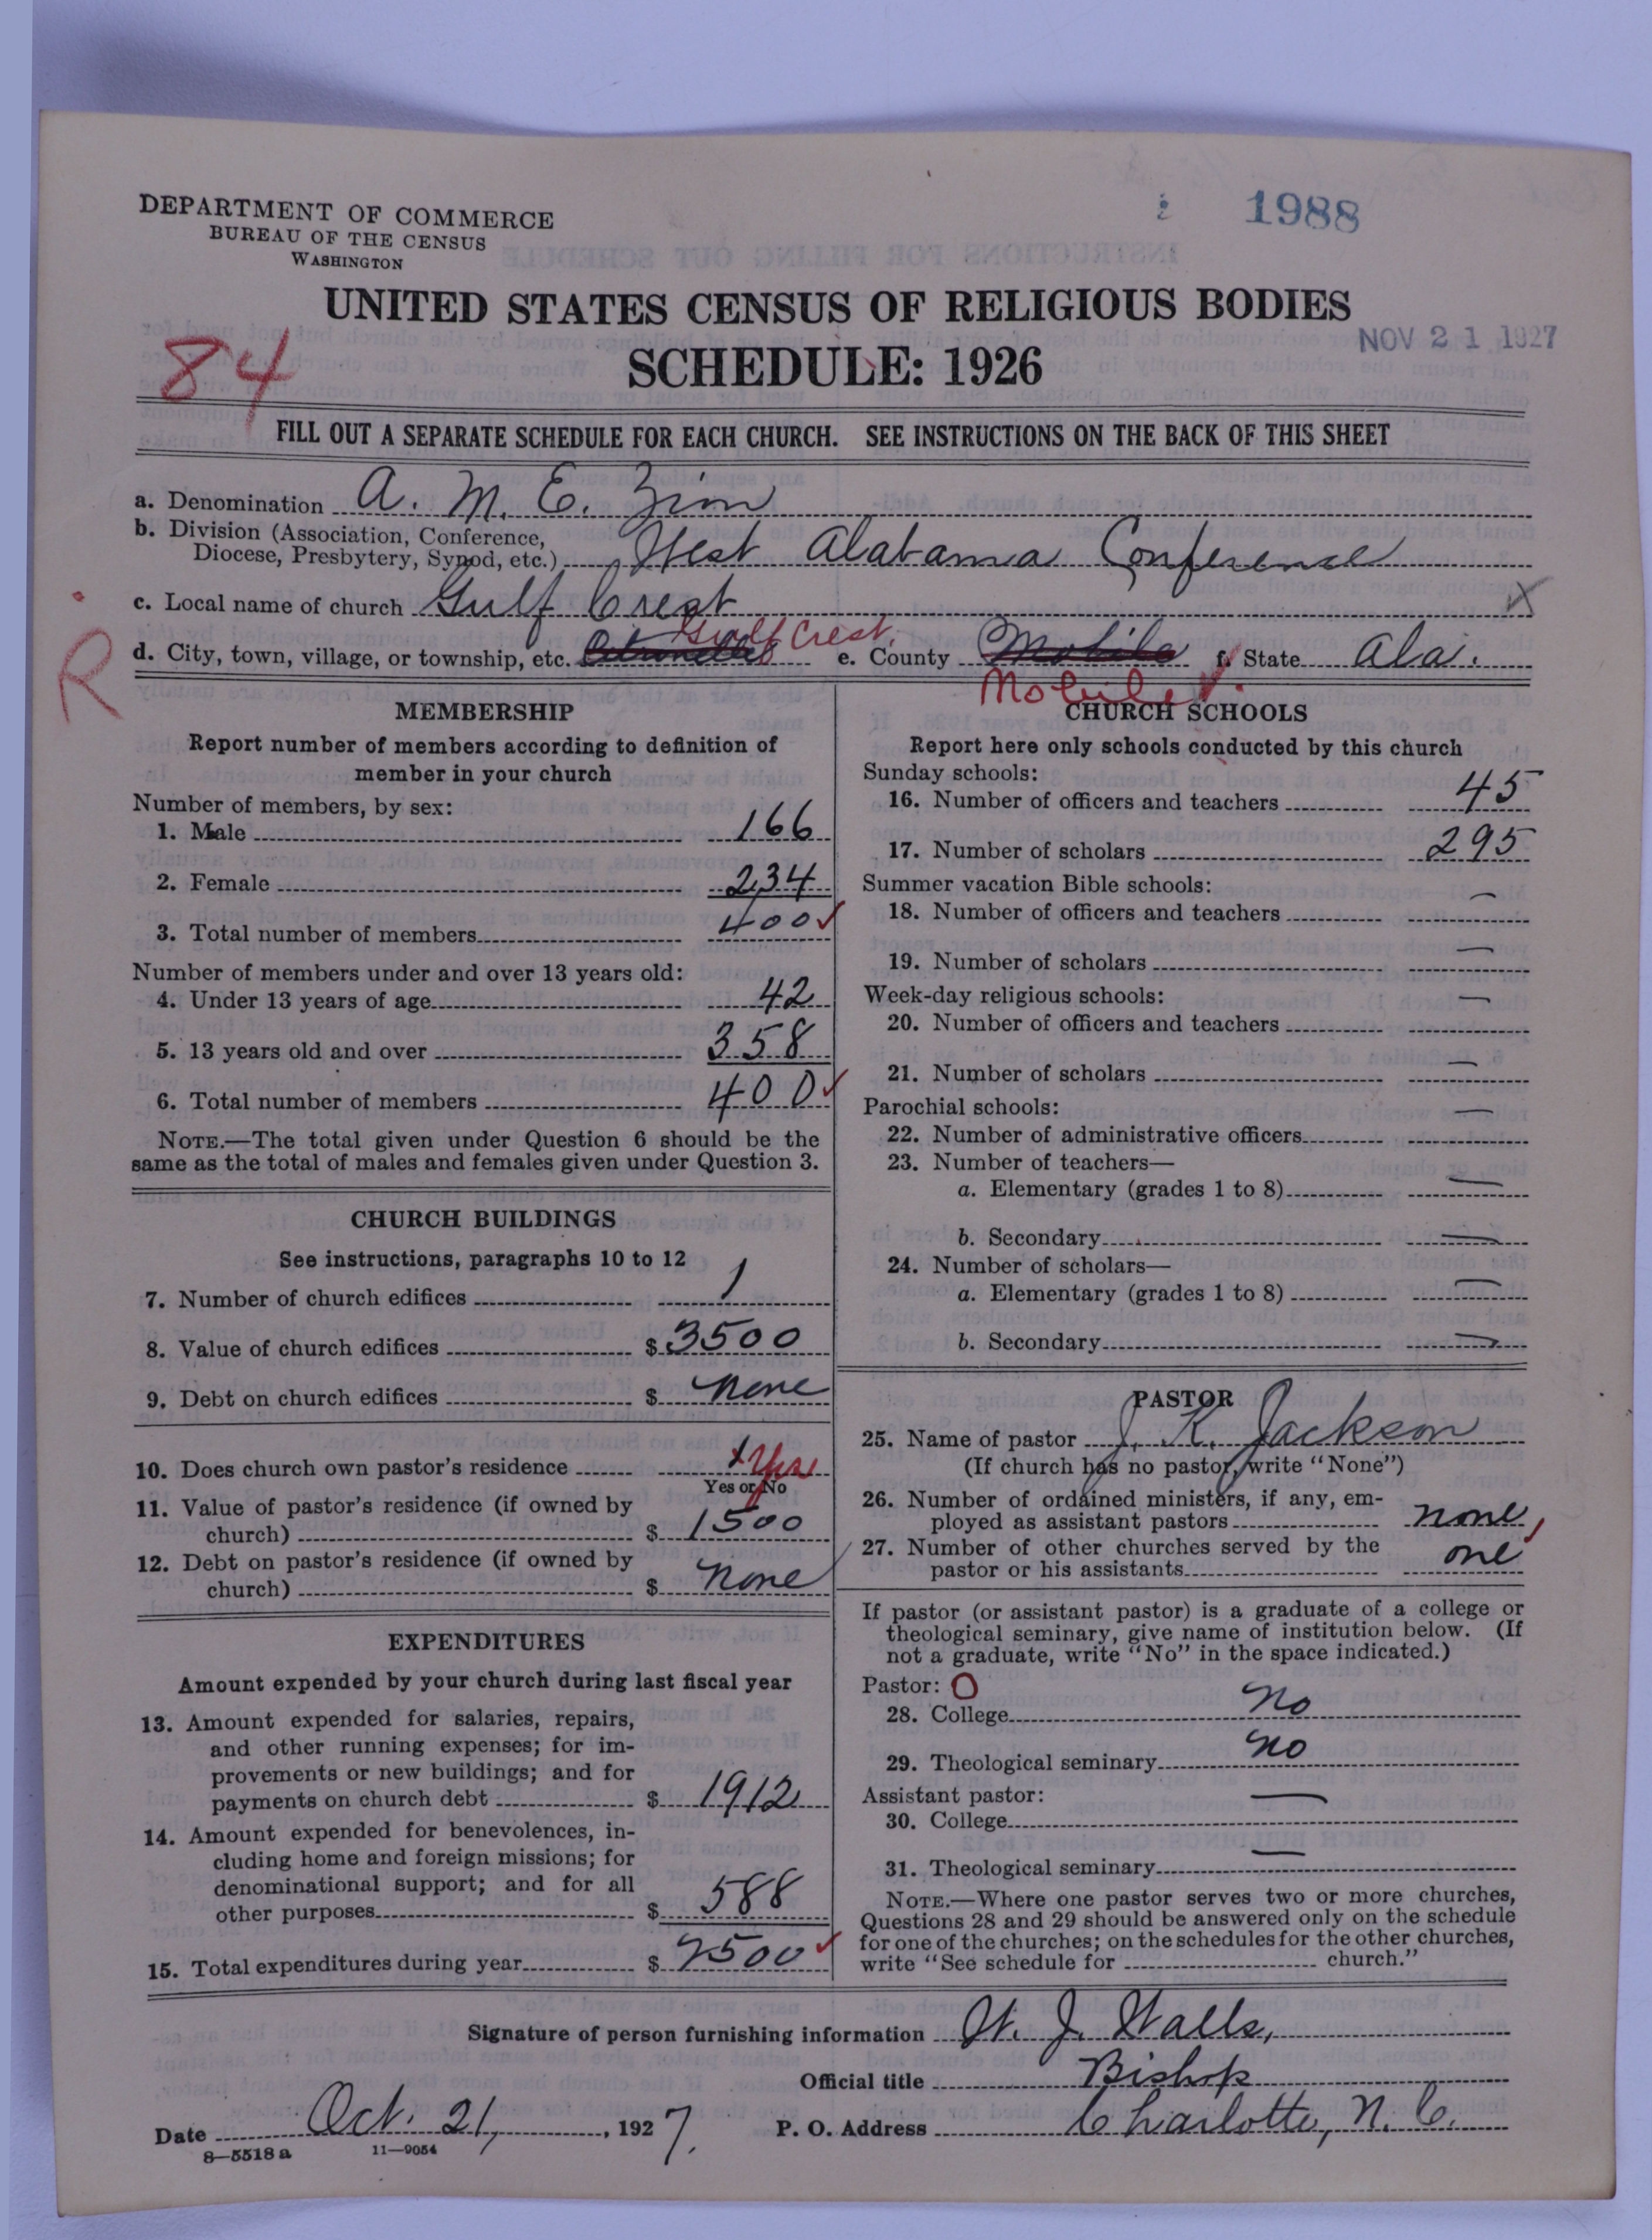 DEPARTMENT OF COMMERCE
BUREAU OF THE CENSUS
WASHINGTON
1988
UNITED STATES CENSUS OF RELIGIOUS BODIES
NOV 21 1927
84
SCHEDULE: 1926
FILL OUT A SEPARATE SCHEDULE FOR EACH CHURCH. SEE INSTRUCTIONS ON THE BACK OF THIS SHEET
a. Denomination A. M. E. Zion
b. Division (Association, Conference,
Diocese, Presbytery, Synod, etc.) West Alabama Conference
c. Local name of church Gulf Crest X
Gulf Crest.
d. City, town, village, or township, etc. Citronelle e. County Mobile f. State Ala.
R
Mobile
MEMBERSHIP
Report number of members according to definition of
member in your church
Number of members, by sex:
1. Male 166
2. Female 234
3. Total number of members 400 ✓
Number of members under and over 13 years old:
4. Under 13 years of age 42
5. 13 years old and over 358
6. Total number of members 400 ✓
NOTE.—The total given under Question 6 should be the
same as the total of males and females given under Question 3.
CHURCH BUILDINGS
See instructions, paragraphs 10 to 12
7. Number of church edifices 1
8. Value of church edifices $ 3500
9. Debt on church edifices $ none
10. Does church own pastor's residence x Yes
Yes or No
11. Value of pastor's residence (if owned by
church) $ 1500
12. Debt on pastor's residence (if owned by
church) $ none
EXPENDITURES
Amount expended by your church during last fiscal year
13. Amount expended for salaries, repairs,
and other running expenses; for im-
provements or new buildings; and for
payments on church debt $ 1912
14. Amount expended for benevolences, in-
cluding home and foreign missions; for
denominational support; and for all
other purposes $ 588
15. Total expenditures during year $ 2500 ✓
CHURCH SCHOOLS
Report here only schools conducted by this church
Sunday schools:
16. Number of officers and teachers 45
17. Number of scholars 295
Summer vacation Bible schools:
18. Number of officers and teachers —
19. Number of scholars —
Week-day religious schools:
20. Number of officers and teachers —
21. Number of scholars —
Parochial schools:
22. Number of administrative officers —
23. Number of teachers—
a. Elementary (grades 1 to 8) —
b. Secondary —
24. Number of scholars—
a. Elementary (grades 1 to 8) —
b. Secondary —
PASTOR
25. Name of pastor J. K. Jackson
(If church has no pastor, write "None")
26. Number of ordained ministers, if any, em-
ployed as assistant pastors none
27. Number of other churches served by the
pastor or his assistants one
If pastor (or assistant pastor) is a graduate of a college or
theological seminary, give name of institution below. (If
not a graduate, write "No" in the space indicated.)
Pastor: O
28. College no
29. Theological seminary no
Assistant pastor:
30. College —
31. Theological seminary —
NOTE.—Where one pastor serves two or more churches,
Questions 28 and 29 should be answered only on the schedule
for one of the churches; on the schedules for the other churches,
write "See schedule for church."
Signature of person furnishing information W. J. Walls,
Official title Bishop
Date Oct. 21, 1927. P. O. Address Charlotte, N. C.
8—5518 a 11—9054